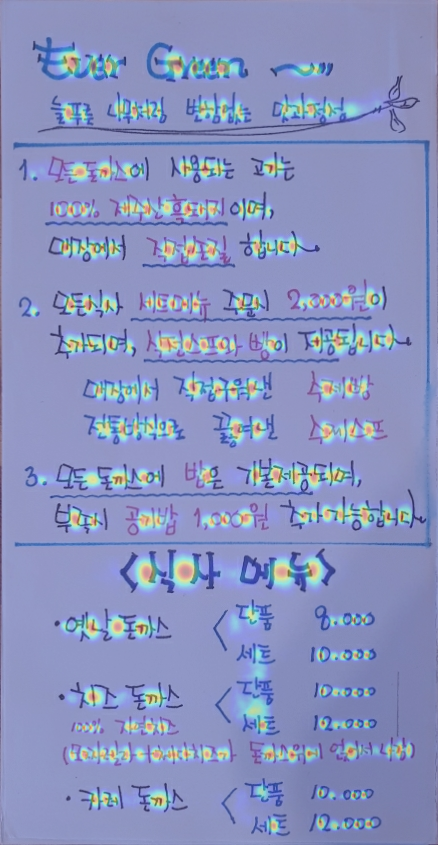 Ever Green ~
늘푸른 나무처럼 변함없는 맛과정성
1. 모든돈까스에 사용되는 고기는
100% 제주산흑돼지이며,
매장에서 직접손질 합니다.
2. 모든식사 세트메뉴 주문시 2,000원이
추가되며, 식전스프와 빵이 제공됩니다.
매장에서 직접구워낸 수제빵
전통방식으로 끓여낸 수제스프
3. 모든 돈까스에 밥은 기본제공되며,
부족시 공기밥 1,000원 추가가능합니다.
<식사 메뉴>
·옛날돈까스 < 단품 8.000
세트 10.000
·치즈 돈까스 < 단품 10.000
100% 자연치즈 세트 12.000
(모짜렐라+체다치즈가 돈까스위에 얹어서 나감)
·카레 돈까스 < 단품 10.000
세트 12.000